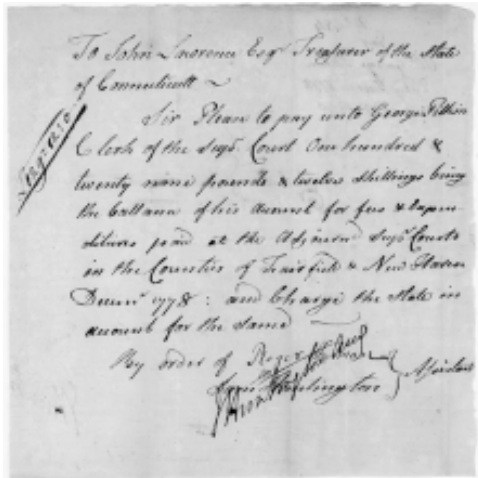 To John Lawrence Esqr Treasurer of the State
of Connecticutt
Sir Please to pay unto George Pitkin
Clerk of the Supr. Court One hundred &
twenty nine pounds & twelve shillings being
the ballance of his account for fees & Expen-
ditures paid at the Adjourned Supr. Courts
in the Counties of Fairfield & New Haven
Decemr. 1778: and Charge the State in
account for the same
By order of Roger
Huntington } Assistants